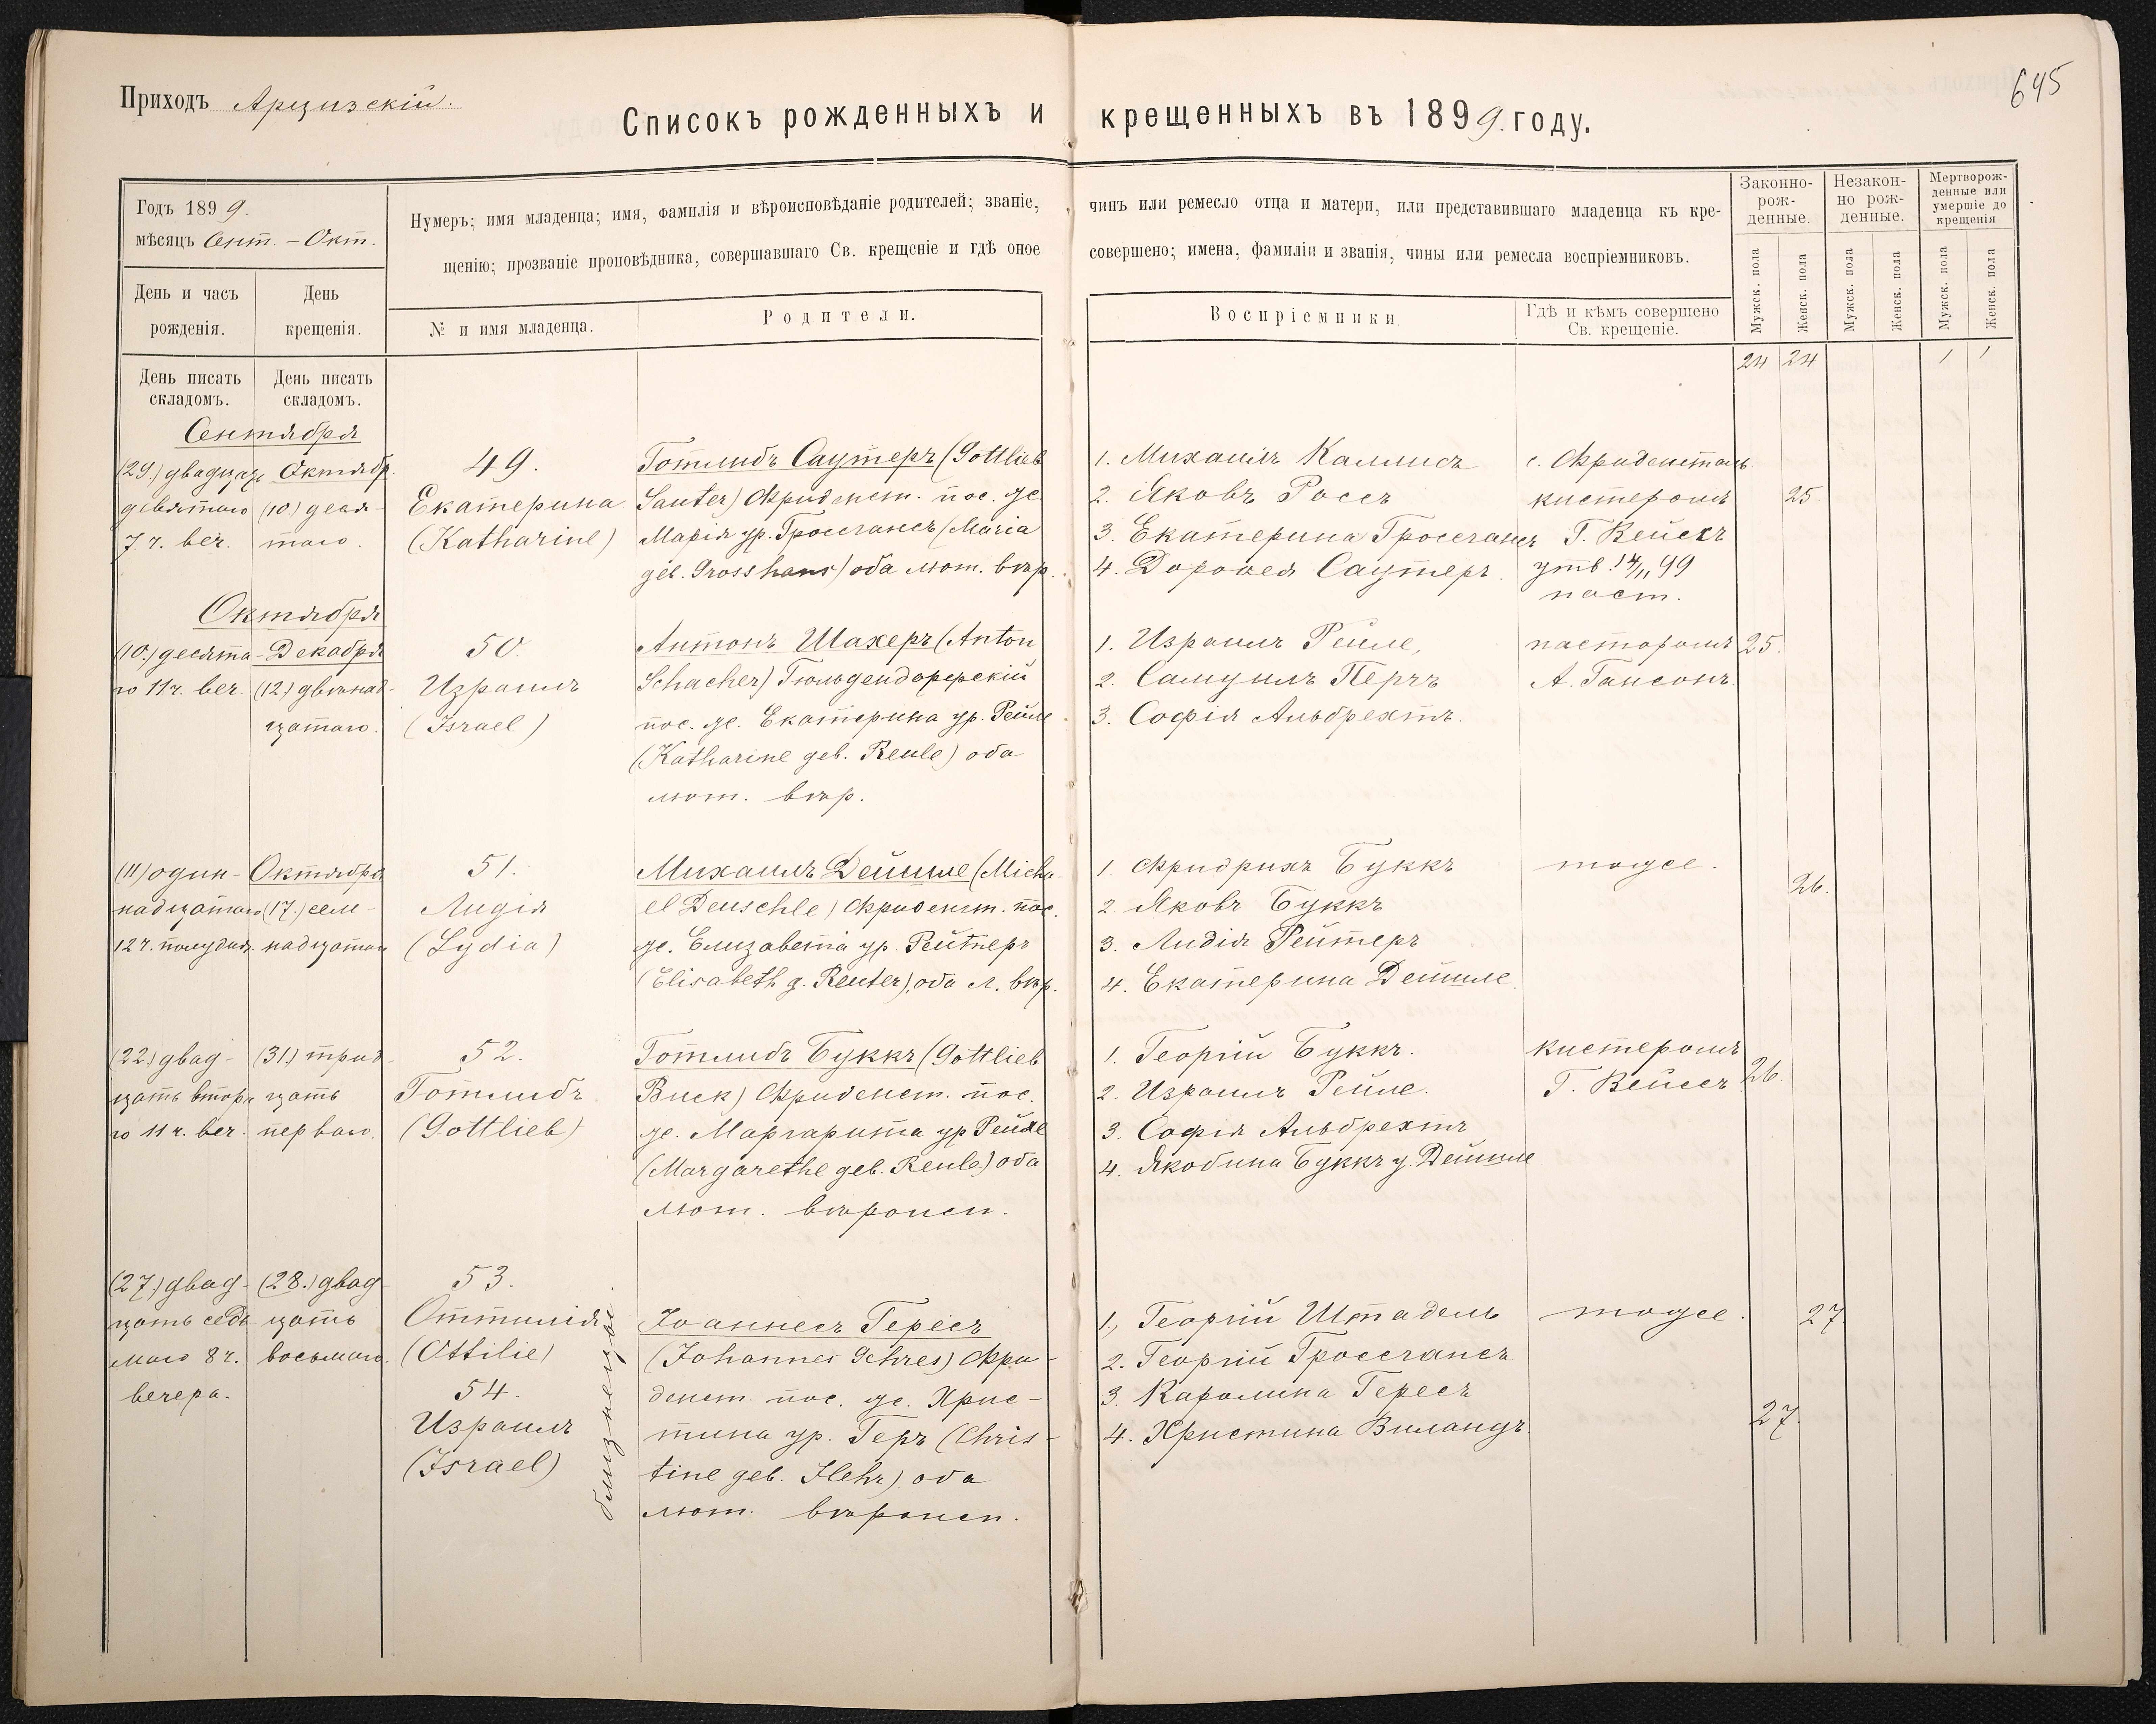 645
Приходъ Арцизскій.
Списокъ рожденныхъ и крещенныхъ въ 1899. году.
Годъ 1899.
мѣсяцъ Сент. – Окт.
День и часъ рожденія.
День крещенія.
Нумеръ; имя младенца; имя, фамилія и вѣроисповѣданіе родителей; званіе, чинъ или ремесло отца и матери, или представившаго младенца къ кре-
щенію; прозваніе проповѣдника, совершавшаго Св. крещеніе и гдѣ оное совершено; имена, фамиліи и званія, чины или ремесла воспріемниковъ.
№ и имя младенца.
Родители.
Воспріемники.
Гдѣ и кѣмъ совершено
Св. крещеніе.
Законно-
рож-
денные.
Незакон-
но рож-
денные.
Мертворож-
денные или
умершіе до
крещенія
Мужск. пола
Женск. пола
Мужск. пола
Женск. пола
Мужск. пола
Женск. пола
24 24 1 1
День писать
складомъ.
День писать
складомъ.
Сентября
(29.) двадцать
девятаго
7 ч. веч.
Октябр.
(10.) деся-
таго.
49.
Екатерина
(Katharine)
Готлибъ Саутеръ (Gottlieb
Sauter) Фриденст. пос. же.
Марія ур. Гроссгансъ (Maria
geb. Grosshans) оба лют. вѣр.
1. Михаилъ Калмисъ
2. Яковъ Россъ
3. Екатерина Гроссгансъ
4. Доровея Саутеръ.
с. Фриденсталь
кистеромъ
Г. Вейссъ
утв. 14/11 99
паст.
25
Октября
(10.) десята-
го 11 ч. веч.
Декабря
(12.) двѣнад-
цатаго.
50.
Израилъ
(Israel)
Антонъ Шахеръ (Anton
Schacher) Гюльдендорфскій
пос. же. Екатерина ур. Рейле
(Katharine geb. Reule) оба
лют. вѣр.
1. Израилъ Рейле,
2. Самуилъ Перчъ
3. Софія Альбрехтъ.
пасторомъ
А. Гансонъ.
25.
(11) один-
надцатаго
12 ч. полудня.
Октября
(17.) сем-
надцатаго
51.
Лидія
(Lydia)
Михаилъ Дейшле (Micha-
el Deuschle) Фриденст. пос.
же. Елизавета ур. Рейтеръ
(Elisabeth g. Reuter), оба л. вѣр.
1. Фридрихъ Буккъ
2. Яковъ Буккъ
3. Лидія Рейтеръ
4. Екатерина Дейшле.
тоже.
26.
(22.) двад-
цать втора
го 11 ч. веч.
(31.) трид-
цать
перваго.
52.
Готлибъ
(Gottlieb)
Готлибъ Буккъ (Gottlieb
Buck) Фриденст. пос.
же. Маргарита ур Рейле
(Margarethe geb. Reule) оба
лют. вѣроисп.
1. Георгій Буккъ.
2. Израилъ Рейле.
3. Софія Альбрехтъ
4. Якобина Буккъ у. Дейшле
кистеромъ
Г. Вейссъ
26.
(27.) двад-
цать седь
маго 8 ч.
вечера.
(28.) двад-
цать
восьмаго.
53.
Оттилія
(Ottilie)
54.
Израилъ
(Israel)
близнецы.
Іоаннесъ Гересъ
(Johannes Gehres) Фри-
денст. пос. же. Хрис-
тина ур. Геръ (Chris-
tine geb. Hehr) оба
лют. вѣроисп.
1. Георгій Штадель
2. Георгій Гроссгансъ
3. Каролина Гересъ
4. Христина Виландъ.
тоже.
27
27.